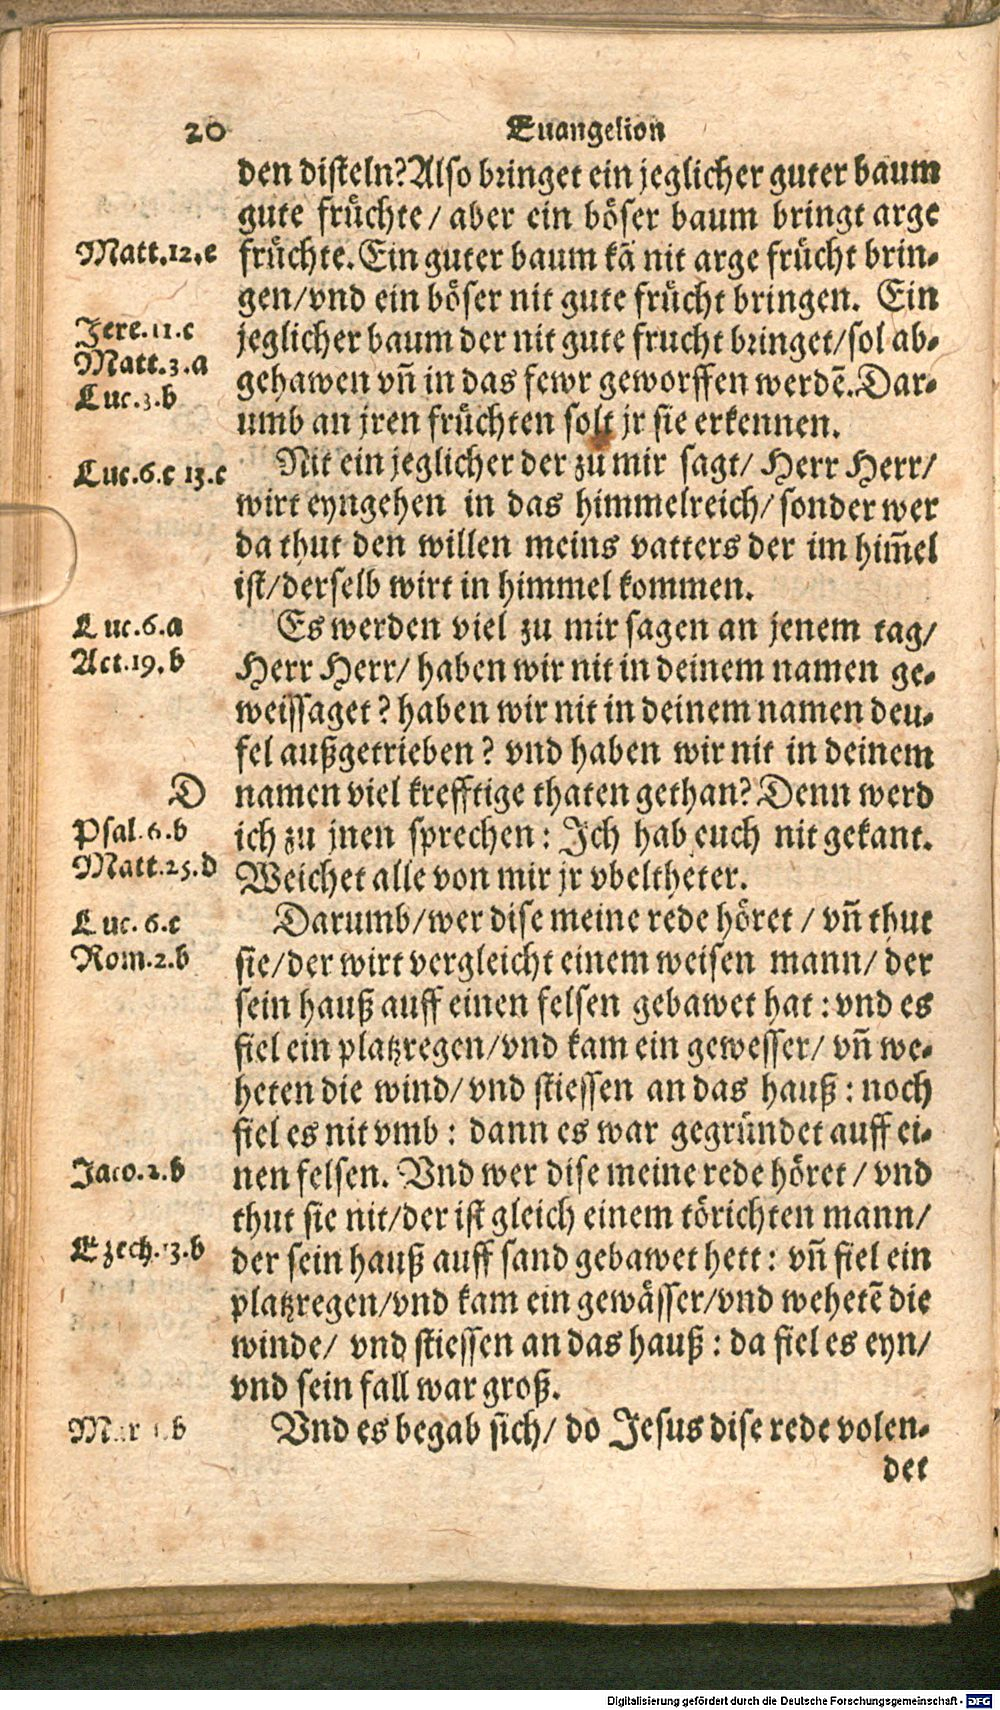 20
Euangelion
den disteln? Also bringet ein jeglicher guter baum
gute früchte/ aber ein böser baum bringt arge
Matt.12.e
früchte. Ein guter baum kã nit arge frücht brin-
gen/vnd ein böser nit gute frücht bringen. Ein
Jere.11.c
jeglicher baum der nit gute frucht bringet/sol ab-
Matt.3.a
gehawen vñ in das fewr geworffen werdẽ. Dar-
Luc.3.b
umb an jren früchten solt jr sie erkennen.
Luc.6.c 13.c
Nit ein jeglicher der zu mir sagt/ Herr Herr/
wirt eyngehen in das himmelreich/ sonder wer
da thut den willen meins vatters der im him̃el
ist/derselb wirt in himmel kommen.
Luc.6.a
Es werden viel zu mir sagen an jenem tag/
Act.19.b
Herr Herr/ haben wir nit in deinem namen ge-
weissaget? haben wir nit in deinem namen deu-
fel außgetrieben? vnd haben wir nit in deinem
D
namen viel krefftige thaten gethan? Denn werd
Psal.6.b
ich zu jnen sprechen: Ich hab euch nit gekant.
Matt.25.d
Weichet alle von mir jr vbeltheter.
Luc.6.c
Darumb/wer dise meine rede höret/ vñ thut
Rom.2.b
sie/der wirt vergleicht einem weisen mann/ der
sein hauß auff einen felsen gebawet hat: vnd es
fiel ein platzregen/vnd kam ein gewesser/ vñ we-
heten die wind/ vnd stiessen an das hauß: noch
fiel es nit vmb: dann es war gegründet auff ei-
Jaco.2.b
nen felsen. Vnd wer dise meine rede höret/ vnd
thut sie nit/der ist gleich einem törichten mann/
Ezech.13.b
der sein hauß auff sand gebawet hett: vñ fiel ein
platzregen/vnd kam ein gewässer/vnd wehetẽ die
winde/ vnd stiessen an das hauß: da fiel es eyn/
vnd sein fall war groß.
b
Vnd es begab sich/ do Jesus dise rede volen-
det
Digitalisierung gefördert durch die Deutsche Forschungsgemeinschaft - DFG